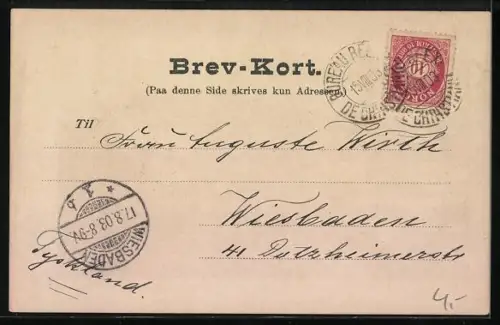 Brev-Kort.
(Paa denne Side skrives kun Adressen.)
Til
Frau Auguste Wirth
Wiesbaden
41 Dotzheimerstr
Tyskland.
WIESBADEN
17.8.03.8-9V.
BUREAU DE
DE CHRISTIANIA
10
4,-